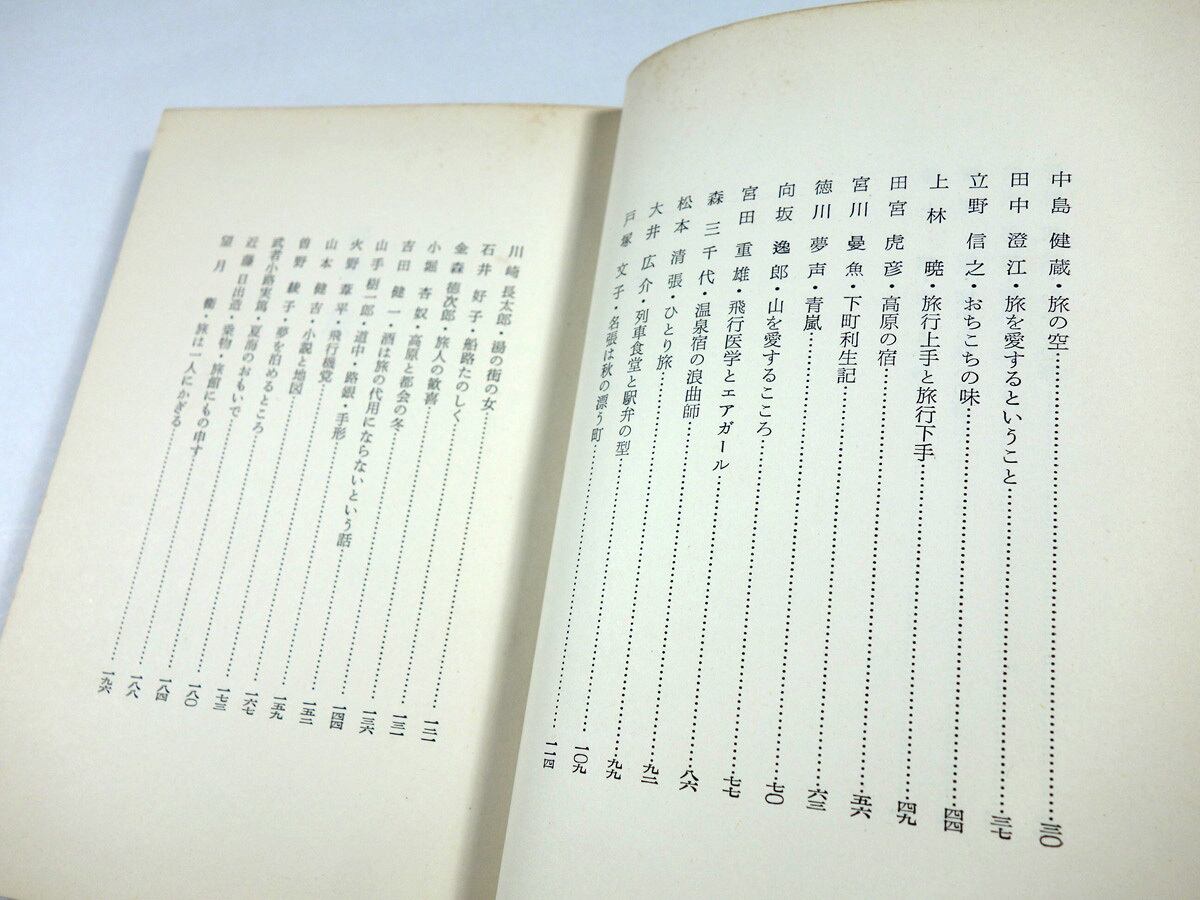 中島健蔵・旅の空…………三〇
田中澄江・旅を愛するということ…………三七
立野信之・おちこちの味…………四四
上林 暁・旅行上手と旅行下手…………四九
田宮虎彦・高原の宿…………五六
宮川曼魚・下町利生記…………六三
徳川夢声・青嵐…………七〇
向坂逸郎・山を愛するこころ…………七七
宮田重雄・飛行医学とエアガール…………八六
森三千代・温泉宿の浪曲師…………九二
松本清張・ひとり旅…………九九
大井広介・列車食堂と駅弁の型…………一〇九
戸塚文子・名張は秋の漂う町…………一一四
川崎長太郎・湯の街の女…………一二一
石井好子・船路たのしく…………一三一
金森徳次郎・旅人の歓喜…………一三六
小堀杏奴・高原と都会の冬…………一四四
吉田健一・酒は旅の代用にならないという話…………一五二
山手樹一郎・道中・路銀・手形…………一五九
火野葦平・飛行機党…………一六七
山本健吉・小説と地図…………一七三
曽野綾子・夢を泊めるところ…………一八〇
武者小路実篤・夏海のおもいで…………一八四
近藤日出造・乗物・旅館にもの申す…………一八八
望月 衛・旅は一人にかぎる…………一九六